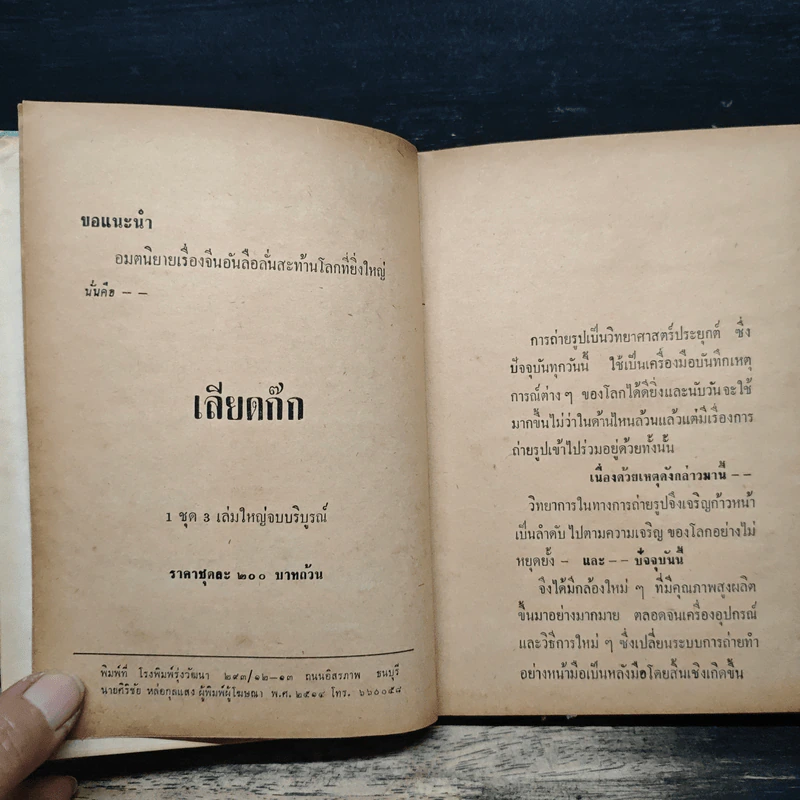 ขอแนะนำ
อมตนิยายเรื่องจีนอันลือลั่นสะท้านโลกที่ยิ่งใหญ่
นั้นคือ – –
เลียดก๊ก
1 ชุด 3 เล่มใหญ่จบบริบูรณ์
ราคาชุดละ ๒๐๐ บาทถ้วน
พิมพ์ที่ โรงพิมพ์รุ่งวัฒนา ๒๙๓/๑๒–๑๓ ถนนอิสรภาพ ธนบุรี
นายศิริชัย หล่อกุลแสง ผู้พิมพ์ผู้โฆษณา พ.ศ. ๒๕๑๔ โทร. ๖๖๐๐๕๘
การถ่ายรูปเป็นวิทยาศาสตร์ประยุกต์ ซึ่ง
ปัจจุบันทุกวันนี้ ใช้เป็นเครื่องมือบันทึกเหตุ
การณ์ต่าง ๆ ของโลกได้ดียิ่งและนับวันจะใช้
มากขึ้นไม่ว่าในด้านไหนล้วนแล้วแต่มีเรื่องการ
ถ่ายรูปเข้าไปร่วมอยู่ด้วยทั้งนั้น
เนื่องด้วยเหตุดังกล่าวมานี้ – –
วิทยาการในทางการถ่ายรูปจึงเจริญก้าวหน้า
เป็นลำดับ ไปตามความเจริญ ของโลกอย่างไม่
หยุดยั้ง – และ – – ปัจจุบันนี้
จึงได้มีกล้องใหม่ ๆ ที่มีคุณภาพสูงผลิต
ขึ้นมาอย่างมากมาย ตลอดจนเครื่องอุปกรณ์
และวิธีการใหม่ ๆ ซึ่งเปลี่ยนระบบการถ่ายทำ
อย่างหน้ามือเป็นหลังมือโดยสิ้นเชิงเกิดขึ้น